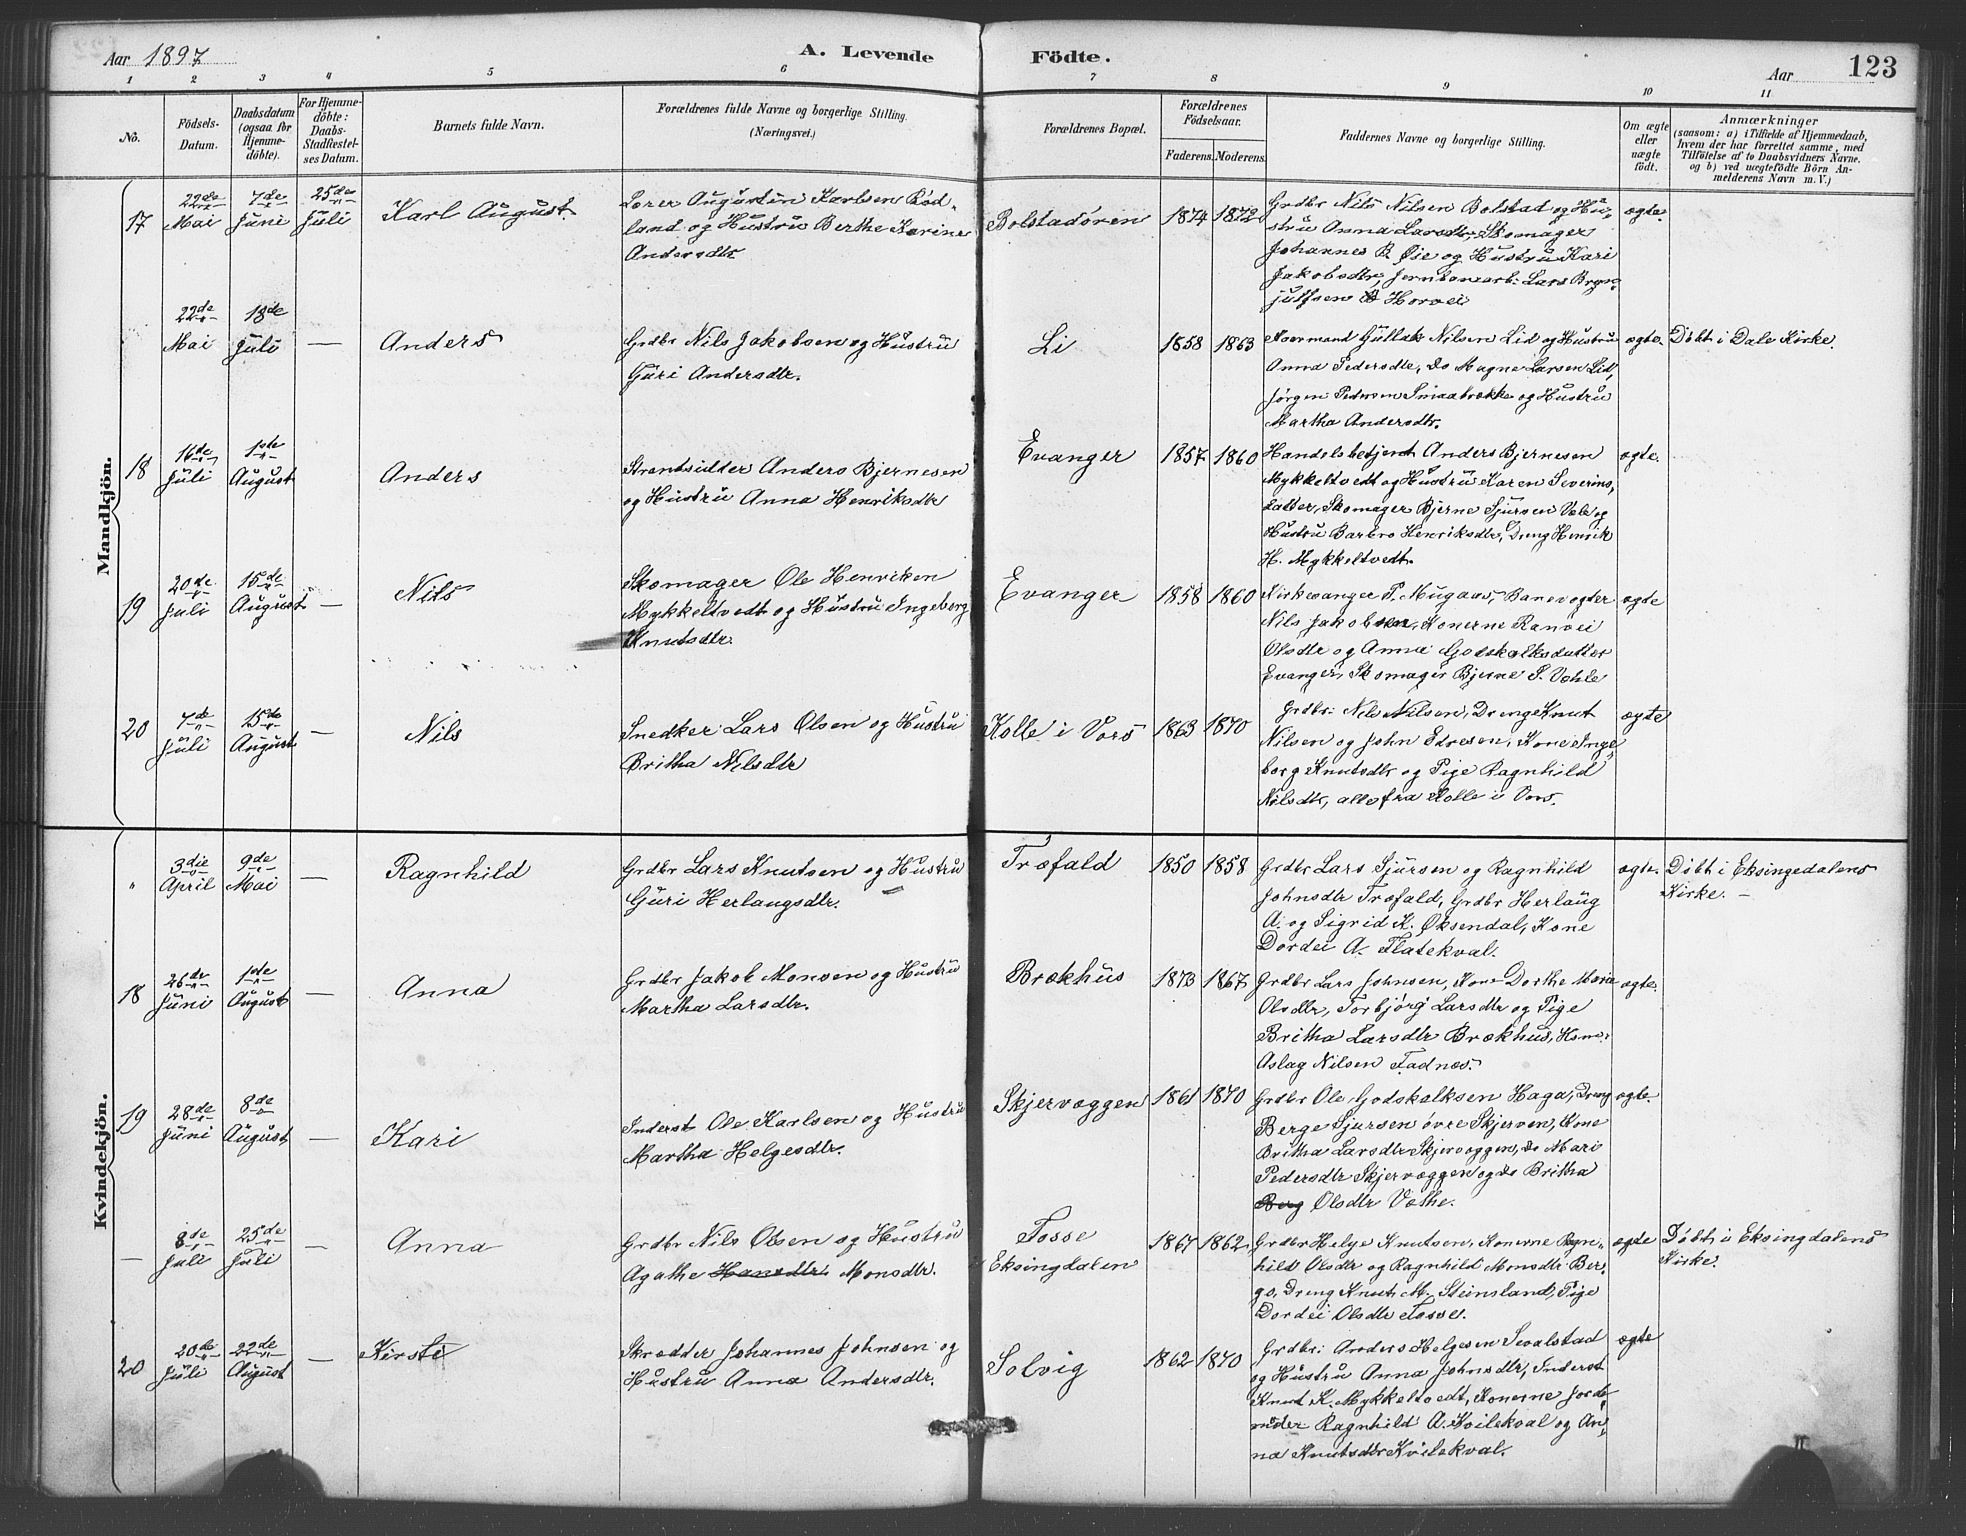 Aar 1897
A. Levende
Födte.
Aar
123
1 2 3 4 5 6 7 8 9 10 11
No.
Födsels-
Datum.
Daabsdatum
(ogsaa for
Hjemme-
döbte).
For Hjemme-
döbte:
Daabs-
Stadfæstel-
ses Datum.
Barnets fulde Navn.
Forældrenes fulde Navne og borgerlige Stilling.
(Næringsvei.)
Forældrenes Bopæl.
Forældrenes
Födselsaar.
Faderens. Moderens.
Faddernes Navne og borgerlige Stilling.
Om ægte
eller
uægte
födt.
Anmærkninger
(saasom: a) i Tilfælde af Hjemmedaab,
hvem der har forrettet samme, med
Tilföielse af to Daabsvidners Navne.
og b) ved uægtefödte Börn An-
melderens Navn m. V.)
Mandkjön.
17
22de
Mai
7de
Juni
25de
Juli
Karl August
Lærer Augustin Karlsen Rød-
land og Hustru Berthe Karine
Andersdtr.
Bolstadøren
1874 1872
Grdbr Nils Nilsen Bolstad og Hu-
stru Anna Larsdtr, Skomager
Johannes B. Øie og Hustru Kari
Jakobsdtr, Jernbanearb: Lars Bryn-
julfsen Horvei
ægte.
22de
Mai
18de
Juli
—
Anders
Grdbr Nils Jakobsen og Hustru
Guri Andersdtr.
Li
1858 1863
Nilsen Lid og Hustru
Anna Pedersdtr, do Magne Larsen Lid,
Jørgen Pedersen Smaabrække og Hustru
Martha Andersdtr.
ægte.
Döbt i Dale Kirke.
18
16de
Juli
1ste
August
Anders
Strandsidder Anders Bjernesen
og Hustru Anna Henriksdtr
Evanger
1857 1860
Handelsbetjent Anders Bjernesen
Mykkeltvedt og Hustru Karen Severins-
datter, Skomager Bjerne Sjursen Væle og
Hustru Barbro Henriksdtr, Dreng Henrik
H. Mykkeltvedt.
ægte.
19
20de
Juli
15de
August
—
Nils
Skomager Ole Henriken
Mykkeltvedt og Hustru Ingeborg
Knutsdtr.
Evanger
1858 1860
Kirkesanger P. Mugaas, Banevogter
Nils Jakobsen, Konerne Ranvei
Olsdtr og Anna Godskalksdatter
Evanger, Skomager Bjerne S. Væhle
ægte
20
7de
Juli
15de
August
—
Nils
Snedker Lars Olsen og Hustru
Britha Nilsdtr
Kolle i Vors
1863 1870
Grdbr: Nils Nilsen, Dreng Knut
Nilsen og John Edresen, Kone Inge-
borg Knutsdtr og Pige Ragnhild
Nilsdtr, alle fra Kolle i Vors.
ægte
Kvindekjön.
"
3die
April
9de
Mai
—
Ragnhild
Grdbr Lars Knutsen og Hustru
Guri Herlaugsdtr.
Træfald
1850 1858
Grdbr Lars Sjursen og Ragnhild
Johnsdtr Træfald, Grdbr Herlaug
A. og Sigrid K. Øksendal, Kone
Dordei A. Flatekval.
ægte.
Döbt i Eksingedalens
Kirke. —
18
26de
Juni
1ste
August
—
Anna
Grdbr Jakob Monsen og Hustru
Martha Larsdtr.
Brækhus
1873 1867
Grdbr Lars Johnsen, Kone Dorthe Maria
Olsdtr, Torbjörg Larsdtr og Pige
Britha Larsdtr Brækhus, Kone
Aslag Nilsen Fadnæs.
ægte.
19
28de
Juni
8de
August
—
Kari
Inderst Ole Karlsen og Hustru
Martha Helgesdtr.
Skjervæggen
1861 1870
Grdbr Ole Godskalksen Haga, Dreng
Berge Sjursen övre Skjerven, Kone
Britha Larsdtr Skjervæggen, do Mari
Pedersdtr Skjervæggen og do Britha
Berg Olsdtr Væthe.
ægte.
—
8de
Juli
25de
Juli
—
Anna
Grdbr Nils Olsen og Hustru
Agathe Hansdtr. Monsdtr.
Fosse
Eksingdalen
1867 1862
Grdbr Helge Knutsen, Konerne Ragn-
hild Olsdtr og Ragnhild Monsdtr Ber-
ge, Dreng Knut M. Steinsland, Pige
Dordei Olsdtr Fosse.
ægte
Döbt i Eksingdalens
Kirke.
20
20de
Juli
22de
August
—
Kirsti
Skrædder Johannes Johnsen og
Hustru Anna Andersdtr.
Solvig
1862 1870
Grdbr: Anders Helgesen Sevalstad
og Hustru Anna Johnsdtr, Inderst
Knut K. Mykkeltvedt, Konerne Jorde-
moder Ragnhild A. Kvilekval og An-
na Knutsdtr Kvilekval.
ægte